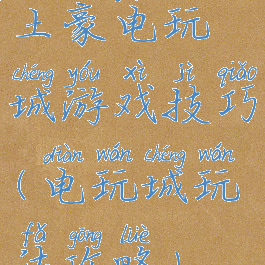 土豪电玩
chéng yóu xì jì qiǎo
城游戏技巧
diàn wán chéng wán
(电玩城玩
fǎ gōng lüè
法攻略)